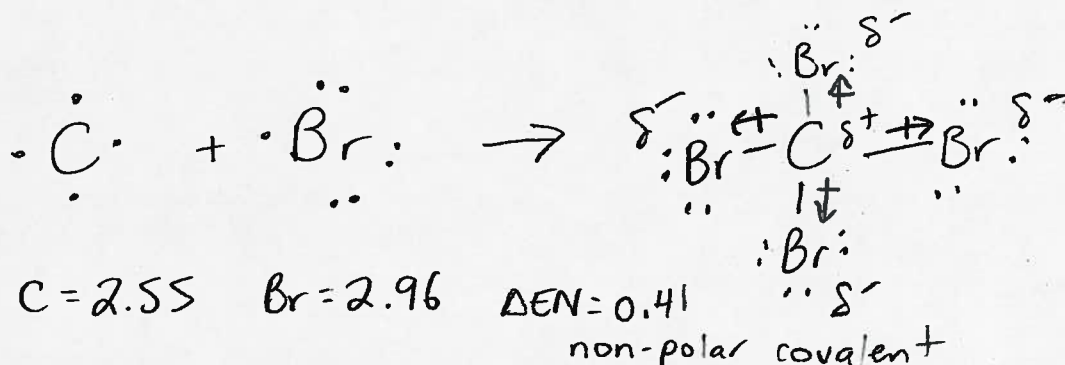 Br: δ-
·C· + ·Br: → δ- :Br – C δ+ – Br: δ-
:Br:
δ-
C = 2.55 Br = 2.96 ΔEN = 0.41
non-polar covalent